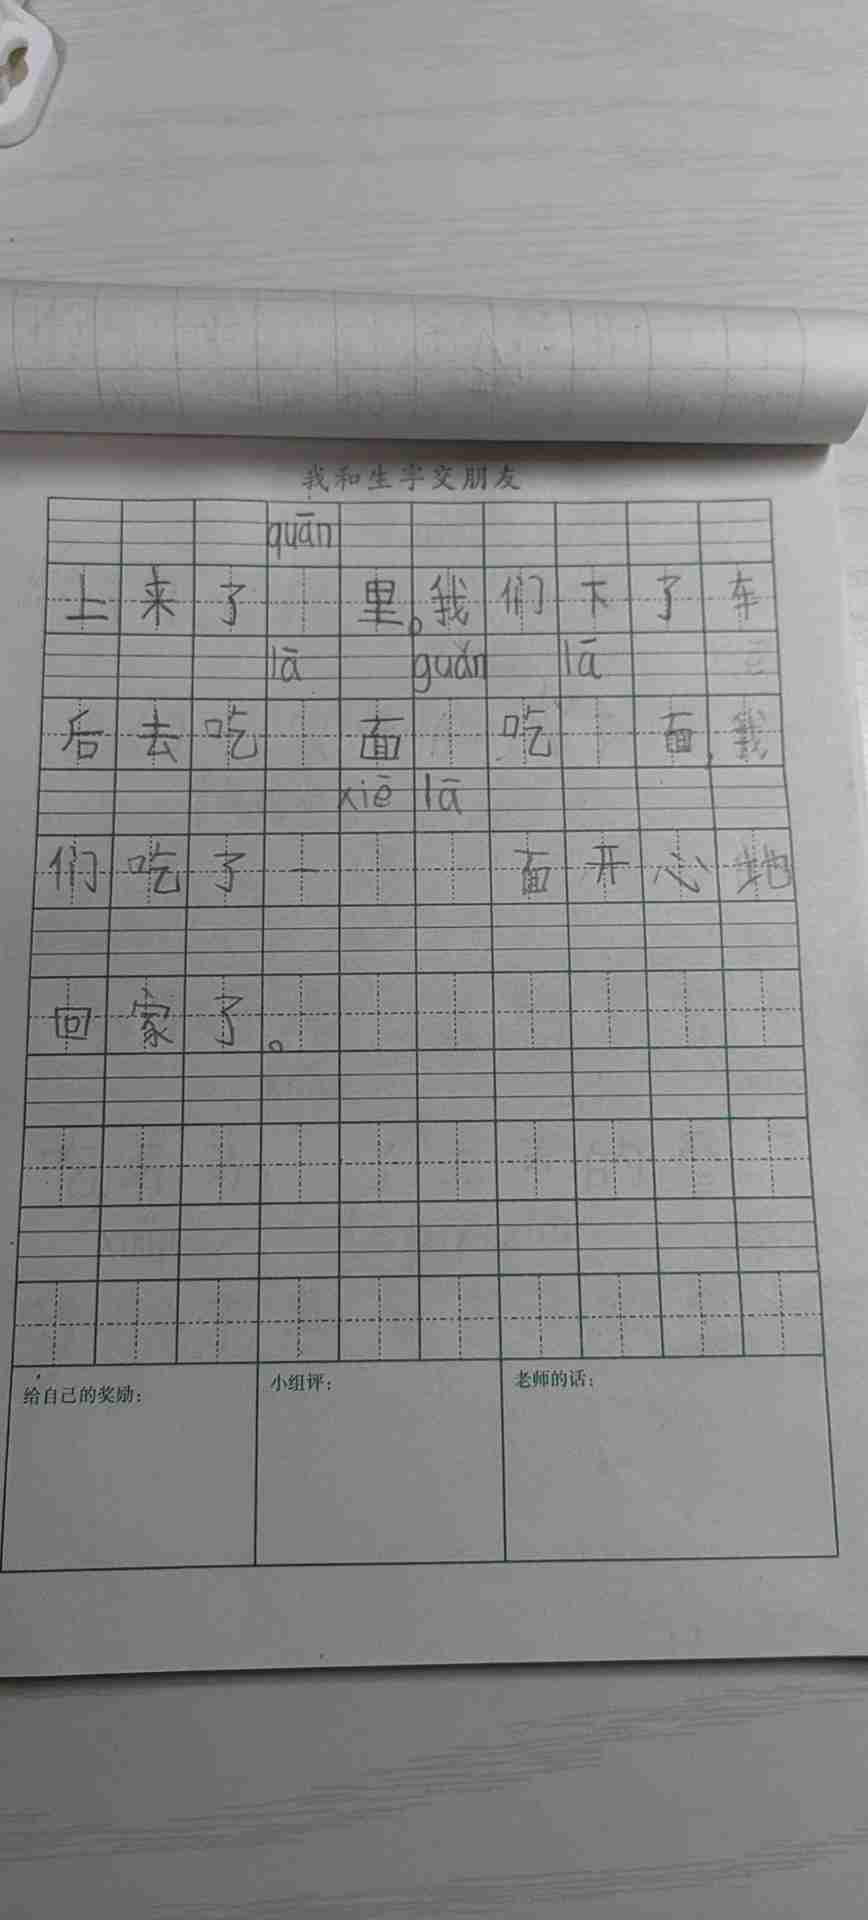 我和生字交朋友
quān
上来了 里。我们下了车
lā guǎn lā
后去吃 面 吃 面,我
xiē lā
们吃了一 面开心地
回家了。
给自己的奖励: 小组评: 老师的话: